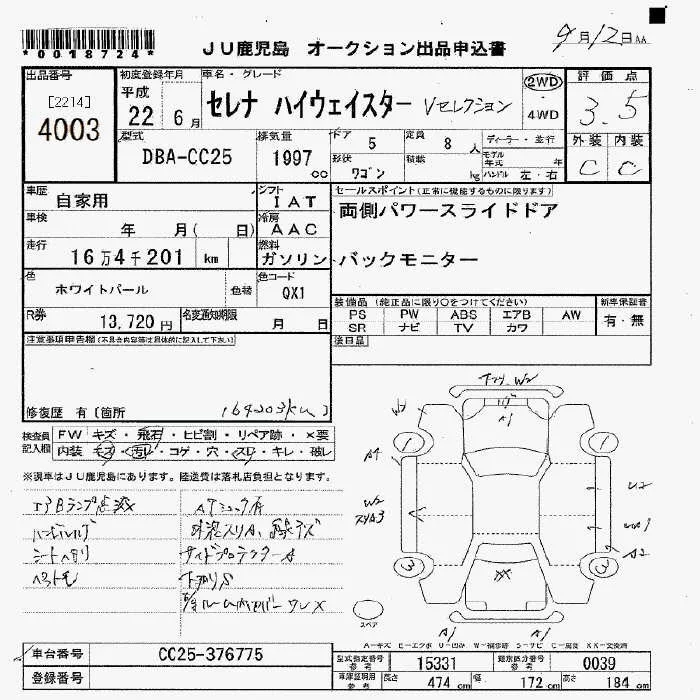 *0018724*
JU鹿児島 オークション出品申込書
9月12日AA
出品番号
[2214]
4003
初度登録年月
平成
22 6月
車名・グレード
セレナ ハイウェイスター Vセレクション
2WD
4WD
評価点
3.5
外装 内装
C C
型式
DBA-CC25
排気量
1997
cc
ドア
5
定員
8人
形状
ワゴン
積載
kg
ディーラー・並行
モデル年式 年
ハンドル 左・右
車歴
自家用
シフト
IAT
車検
年 月( 日)
冷房
AAC
走行
16万4千201 km
燃料
ガソリン
セールスポイント(正常に機能するものに限ります)
両側パワースライドドア
バックモニター
色
ホワイトパール
色替
色コード
QX1
R券
13,720円
名変通知期限
月 日
装備品 (純正品に限り○をつけてください)
PS PW ABS エアB AW
SR ナビ TV カワ
新車保証書
有・無
後日品
注意事項申告欄(不具合内容等は具体的に記入して下さい)
修復歴 有〔箇所
164203km
検査員記入欄
FW キズ・飛石・ヒビ割・リペア跡・×要
内装 キズ・汚レ・コゲ・穴・スレ・キレ・破レ
※現車はJU鹿児島にあります。陸送費は落札店負担となります。
エアBランプ点滅
シートヘタリ
下廻りS
A1
A4
W2
A2
1
1
3
3
スペア
A1
A1
A-キズ E-エクボ U-凹み W-補修跡 S-サビ C-腐食 XX-交換済
車台番号
CC25-376775
登録番号
型式指定番号
参考
15331
類別区分番号
参考
0039
車庫証明用
参考
長さ
474cm
幅
172cm
高さ
184cm